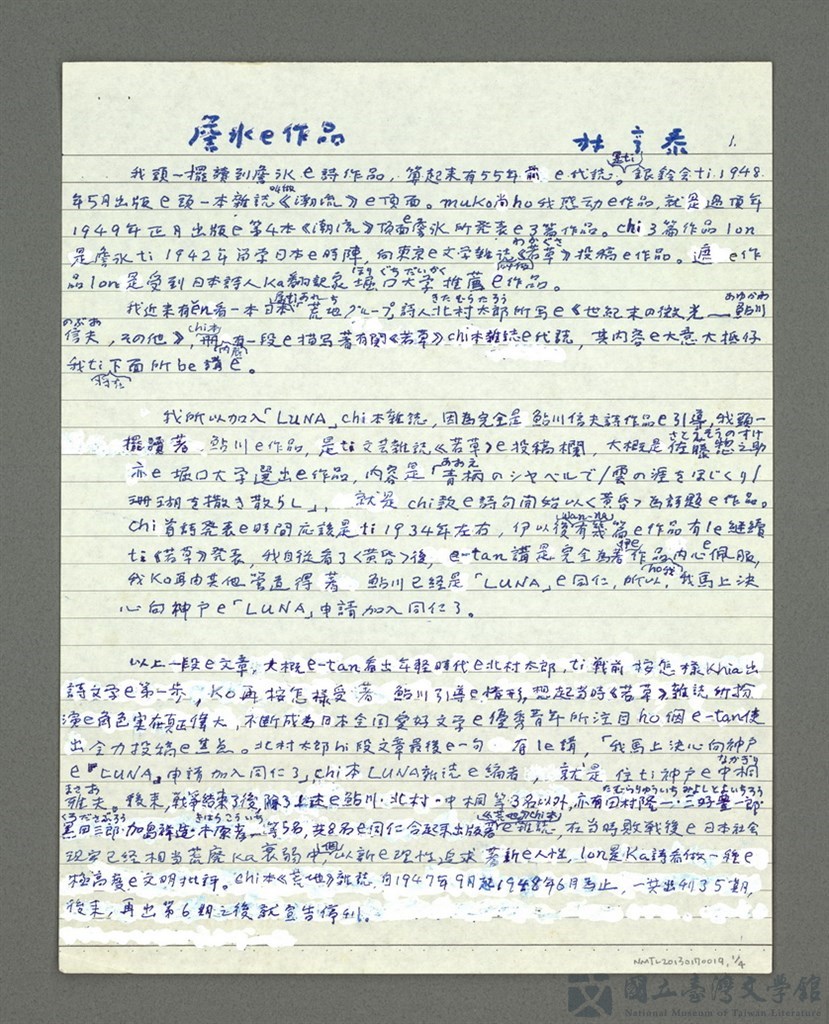 詹氷e作品 林亨泰 1.
我頭一擺讀到詹氷e詩作品,算起來有55年前e代誌。銀鈴会ti 1948
年5月出版e頭一本雜誌《潮流》e頂面。muko尚ho我感动e作品,就是過頂年
1949年正月出版e第4本《潮流》頂面e詹氷所発表e3篇作品。chi 3篇作品lon
是詹氷ti 1942年留学日本e時陣,向東京e文学雜誌《若草》わかくさ投稿e作品。遮e作
品lon是受到日本詩人Ka翻訳家堀口大学ほりぐちだいがく推薦e作品。
我近来有ēn看一本日本"荒地グループ"詩人北村太郎きたむらたろう所写e《世紀末の微光—鮎川あゆかわ
信夫のぶお,その他》,chit冊内底有一段e描写著有関《若草》chi本雜誌e代誌,其内容e大意大抵仔
我ti下面所be講e。
我所以加入「LUNA」chi本雜誌,因為完全是鮎川信夫詩作品e引導,我頭一
擺讀著鮎川e作品,是ti文芸雜誌《若草》e投稿欄,大概是佐藤惣之助さとうそうのすけ
亦e堀口大学選出e作品,内容是「青柄のシャベルで/雲の涯をほじくり/
珊瑚を撒き散らし」,就是chi款e詩句開始以《黄昏》為詩題e作品。
Chi首詩発表e時間応該是ti 1934年左右,伊以後有幾wan-na篇e作品有le継續
ti《若草》発表,我自從看了《黄昏》後,e-tan講是完全為著伊e作品内心e佩服,
我Ko再由其他管道得著鮎川已經是「LUNA」e同仁,所以,ho我我馬上決
心向神戸e「LUNA」申請加入同仁了。
以上一段e文章,大概e-tan看出年輕時代e北村太郎,ti戦前按怎樣Khia出
詩文学e第一步,Ko再按怎樣受著鮎川引導e情形,想起当時《若草》雜誌所扮
演e角色実在真正偉大,不断成為日本全国愛好文学e優秀青年所注目ho個e-tan使
出全力投稿e焦点。北村太郎hi段文章最後e一句 有le講,「我馬上決心向神戸
e「LUNA」申請加入同仁了」,chi本LUNA雜誌e編者,就是住ti神戸e中桐なかぎり
雅夫まさお。後来,戦争結束了後,除了上述e鮎川·北村·中桐等3名以外,亦有田村隆一たむらりゅういち·三好豊一郎みよしとよいちろう
黒田三郎くろださぶろう·加島祥造·木原孝一きはらこういち等5名,共8名e同仁合起来出版著《荒地》chi本e雜誌,在当時敗戦後e日本社会
現実已經相当荒廃Ka衰弱中,以新e理性追求著新e人性,lon是Ka詩為做一種e
極高度e文明批評。chi本《荒地》雜誌,自1947年9月起1948年6月為止,一共出刊35期,
後来,再出第6期之後就宣告停刊。
NMTL20130170019, 1/4
國立臺灣文學館
National Museum of Taiwan Literature